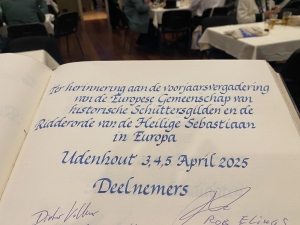 Ter herinnering aan de voorjaarsvergadering
van de Europese Gemeenschap van
Historische Schuttersgilden en de
Ridderorde van de Heilige Sebastiaan
in Europa
Udenhout 3,4,5 April 2025
Deelnemers